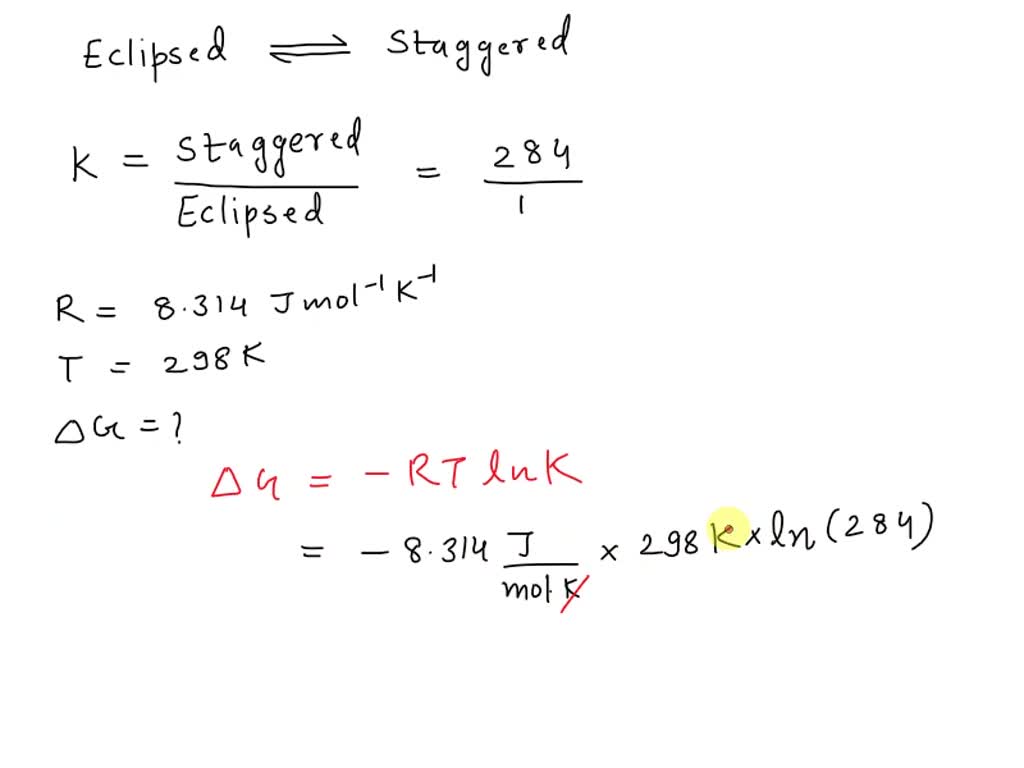 Eclipsed ⇌ Staggered
K = Staggered / Eclipsed = 284 / 1
R = 8.314 J mol⁻¹ K⁻¹
T = 298 K
ΔG = ?
ΔG = − RT ln K
= − 8.314 J / mol. K × 298 K × ln (284)